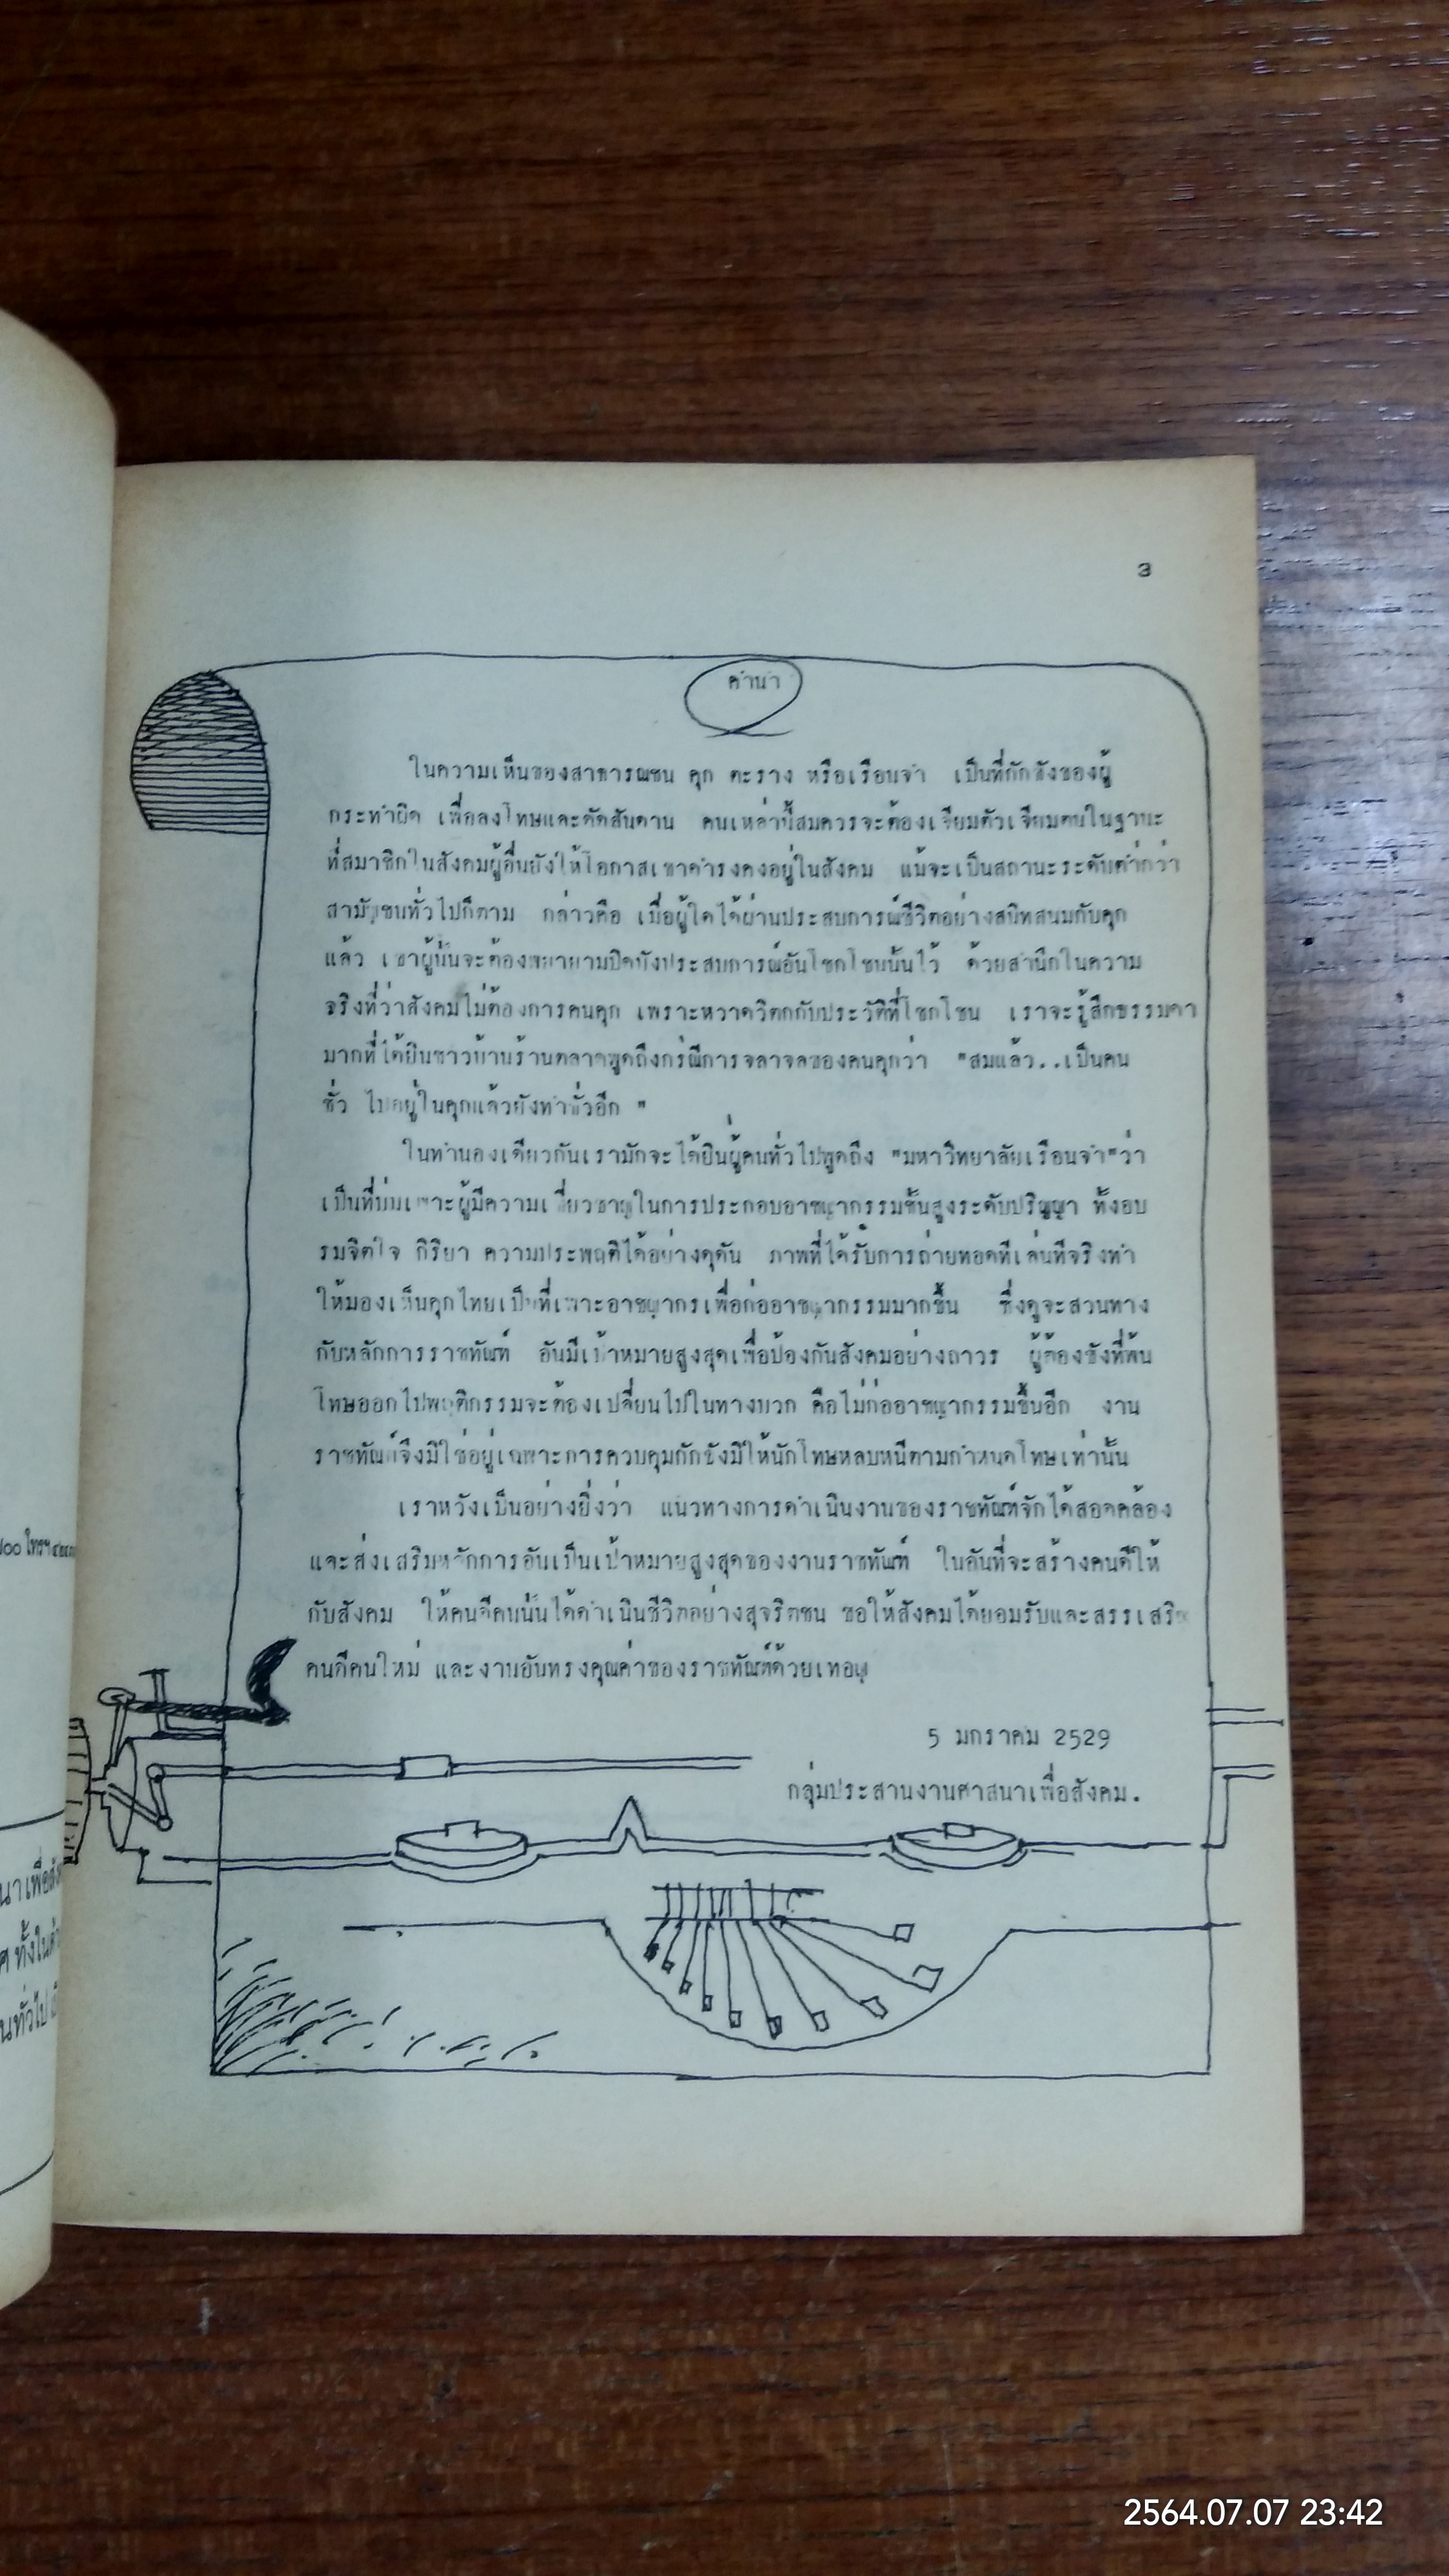 3
คำนำ
ในความเห็นของสาธารณชน คุก ตะราง หรือเรือนจำ เป็นที่กักขังของผู้
กระทำผิด เพื่อลงโทษและดัดสันดาน คนเหล่านี้สมควรจะต้องเจียมตัวเจียมตนในฐานะ
ที่สมาชิกในสังคมผู้อื่นยังให้โอกาสเขาดำรงคงอยู่ในสังคม แม้จะเป็นสถานะระดับต่ำกว่า
สามัญชนทั่วไปก็ตาม กล่าวคือ เมื่อผู้ใดได้ผ่านประสบการณ์ชีวิตอย่างสนิทสนมกับคุก
แล้ว เขาผู้นั้นจะต้องพยายามปิดบังประสบการณ์อันโชกโชนนั้นไว้ ด้วยสำนึกในความ
จริงที่ว่าสังคมไม่ต้องการคนคุก เพราะหวาดวิตกกับประวัติที่โชกโชน เราจะรู้สึกธรรมดา
มากที่ได้ยินชาวบ้านร้านตลาดพูดถึงกรณีการจลาจลของคนคุกว่า "สมแล้ว..เป็นคน
ชั่ว ไปอยู่ในคุกแล้วยังทำชั่วอีก "
ในทำนองเดียวกันเรามักจะได้ยินผู้คนทั่วไปพูดถึง "มหาวิทยาลัยเรือนจำ"ว่า
เป็นที่บ่มเพาะผู้มีความเชี่ยวชาญในการประกอบอาชญากรรมขั้นสูงระดับปริญญา ทั้งอบ
รมจิตใจ กิริยา ความประพฤติได้อย่างดุดัน ภาพที่ได้รับการถ่ายทอดทีเล่นทีจริงทำ
ให้มองเห็นคุกไทยเป็นที่เพาะอาชญากรเพื่อก่ออาชญากรรมมากขึ้น ซึ่งดูจะสวนทาง
กับหลักการราชทัณฑ์ อันมีเป้าหมายสูงสุดเพื่อป้องกันสังคมอย่างถาวร ผู้ต้องขังที่พ้น
โทษออกไปพฤติกรรมจะต้องเปลี่ยนไปในทางบวก คือไม่ก่ออาชญากรรมขึ้นอีก งาน
ราชทัณฑ์จึงมิใช่อยู่เฉพาะการควบคุมกักขังมิให้นักโทษหลบหนีตามกำหนดโทษเท่านั้น
เราหวังเป็นอย่างยิ่งว่า แนวทางการดำเนินงานของราชทัณฑ์จักได้สอดคล้อง
และส่งเสริมหลักการอันเป็นเป้าหมายสูงสุดของงานราชทัณฑ์ ในอันที่จะสร้างคนดีให้
กับสังคม ให้คนดีคนนั้นได้ดำเนินชีวิตอย่างสุจริตชน ขอให้สังคมได้ยอมรับและสรรเสริญ
คนดีคนใหม่ และงานอันทรงคุณค่าของราชทัณฑ์ด้วยเทอญ
5 มกราคม 2529
กลุ่มประสานงานศาสนาเพื่อสังคม.
2564.07.07 23:42